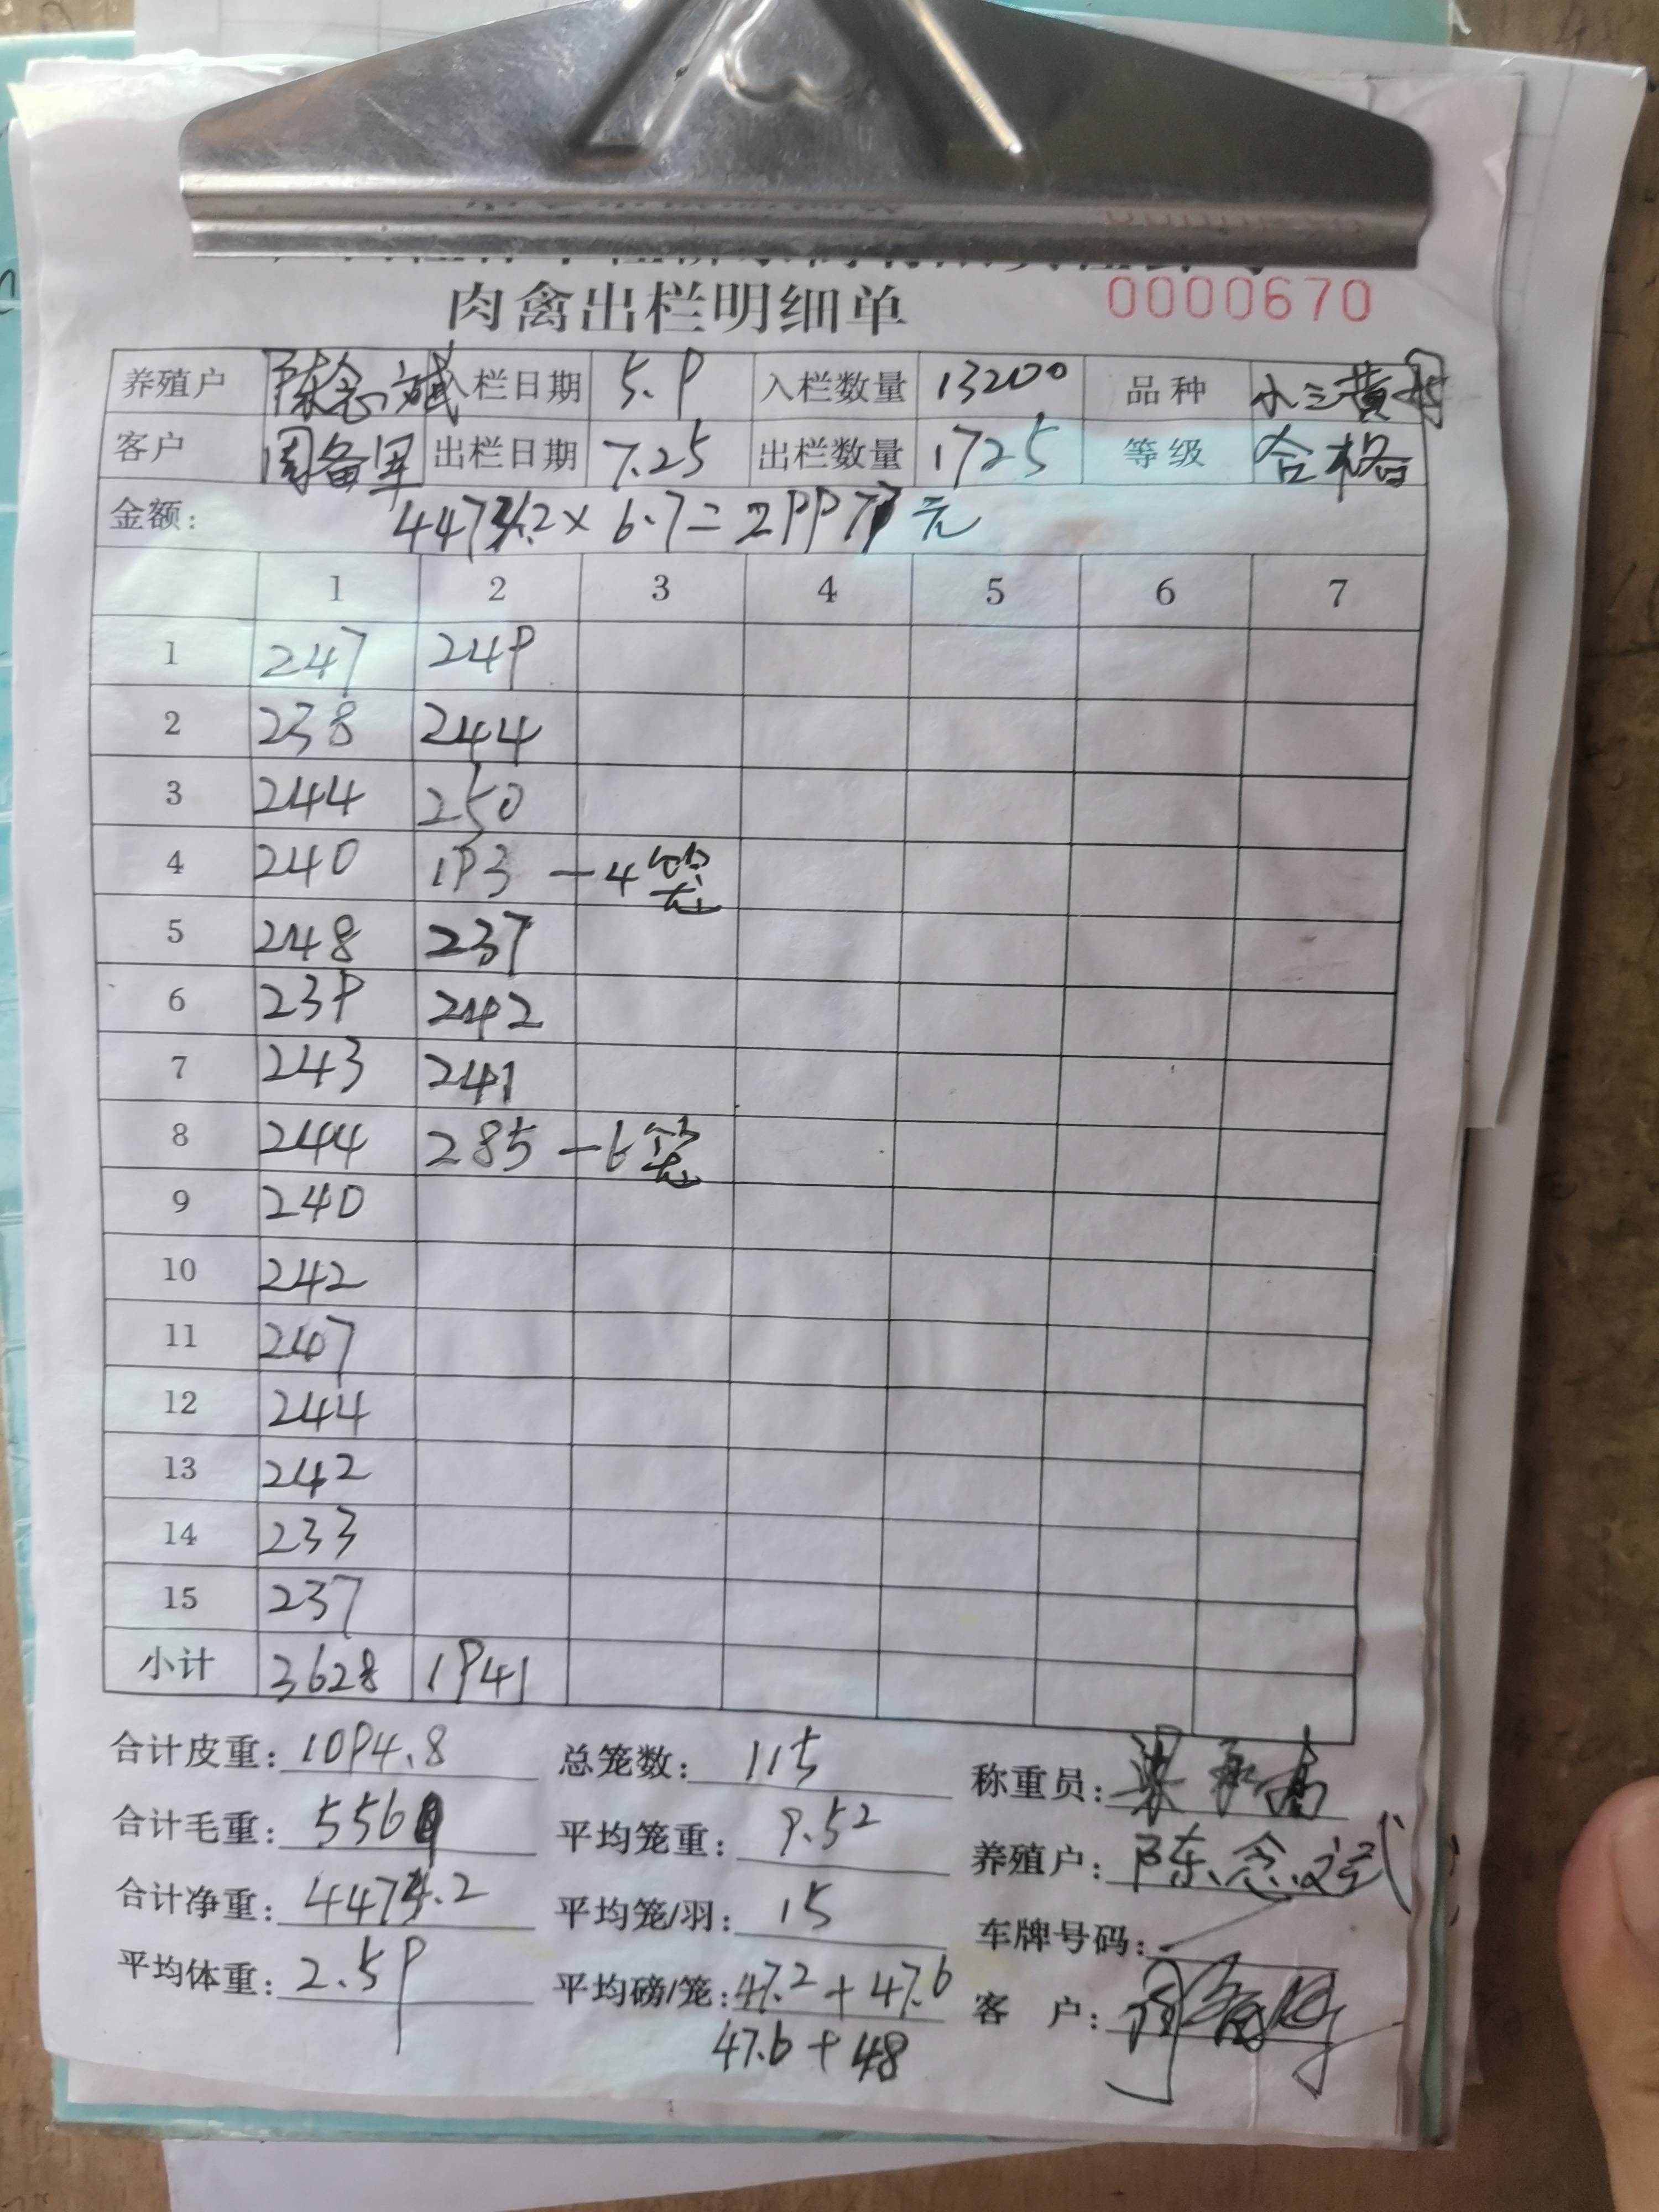 肉禽出栏明细单 0000670
养殖户 陈念斌 入栏日期 5.9 入栏数量 13200 品种 小三黄
客户 周备军 出栏日期 7.25 出栏数量 1725 等级 合格
金额: 4474.2 × 6.7 = 29977 元
1 2 3 4 5 6 7
1 247 249
2 238 244
3 244 250
4 240 193 —4笼
5 248 237
6 239 242
7 243 241
8 244 285 —6笼
9 240
10 242
11 247
12 244
13 242
14 233
15 237
小计 3628 1941
合计皮重: 1094.8 总笼数: 115 称重员:
合计毛重: 5569 平均笼重: 9.52 养殖户: 陈念斌
合计净重: 4474.2 平均笼/羽: 15 车牌号码:
平均体重: 2.59 平均磅/笼: 47.2 + 47.6 客 户:
47.6 + 48